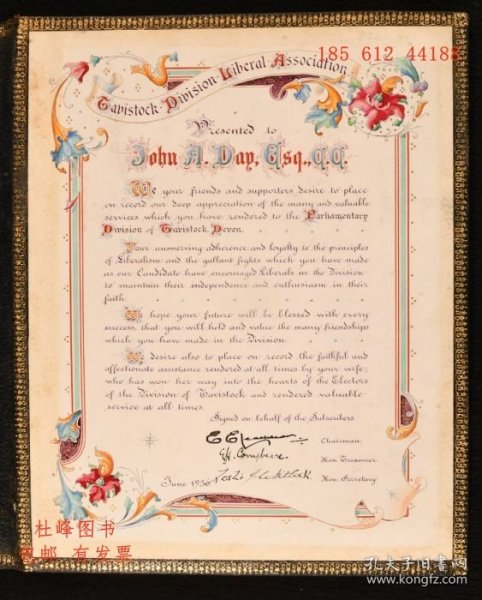 185 612 44188
Tavistock Division Liberal Association
Presented to
John A. Day, Esq., C.C.
We your friends and supporters desire to place
on record our deep appreciation of the many and valuable
services which you have rendered to the Parliamentary
Division of Tavistock, Devon.
Your unswerving adherence and loyalty to the principles
of Liberalism and the gallant fights which you have made
as our Candidate have encouraged Liberals in the Division
to maintain their independence and enthusiasm in their
faith.
We hope your future will be blessed with every
success, that you will hold and value the many friendships
which you have made in the Division.
We desire also to place on record the faithful and
affectionate assistance rendered at all times by your wife,
who has won her way into the hearts of the Electors
of the Division of Tavistock and rendered valuable
service at all times.
Signed on behalf of the Subscribers
Chairman.
Hon Treasurer.
June 1936
Hon Secretary.
杜峰图书
包邮 有发票
孔夫子旧书网
www.kongfz.com